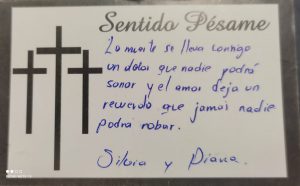 Sentido Pésame
La muerte se lleva consigo
un dolor que nadie podrá
sanar y el amor deja un
recuerdo que jamás nadie
podrá robar.
Silvia y Diana.